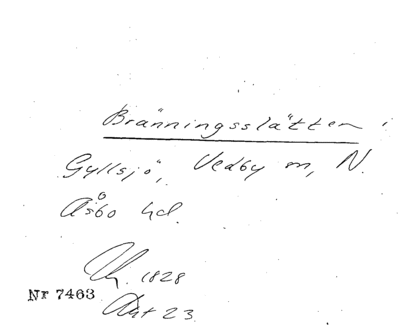 Bränningsslätten i
Gyllsjö, Vedby sn, N.
Åsbo hd.
1828
Nr 7463
Akt 23